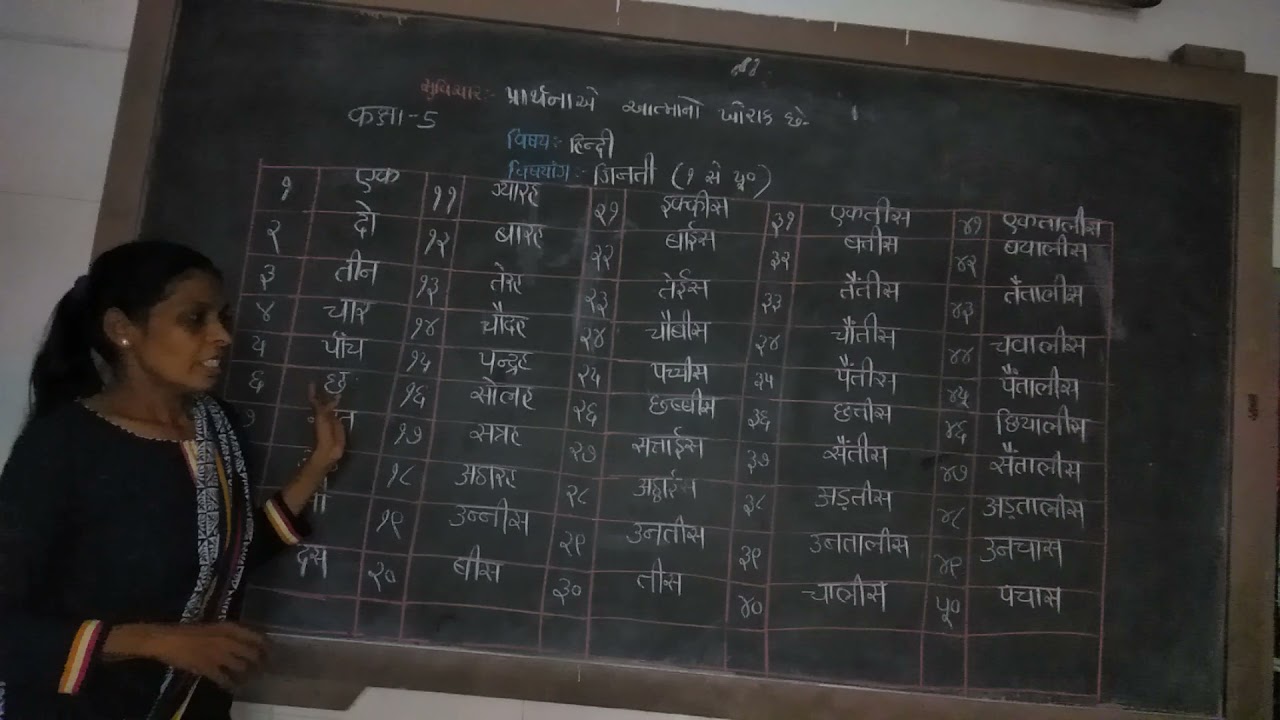 सुविचार:- પ્રાર્થના એ આત્માનો ખોરાક છે.
कक्षा-5
विषय:- हिन्दी
विषयांग:- गिनती (१ से ५०)
१ एक ११ ग्यारह २१ इक्कीस ३१ एकतीस ४१ एकतालीस
२ दो १२ बारह २२ बाईस ३२ बत्तीस ४२ बयालीस
३ तीन १३ तेरह २३ तेईस ३३ तैंतीस ४३ तैंतालीस
४ चार १४ चौदह २४ चौबीस ३४ चौंतीस ४४ चवालीस
५ पाँच १५ पन्द्रह २५ पच्चीस ३५ पैंतीस ४५ पैंतालीस
६ छह १६ सोलह २६ छब्बीस ३६ छत्तीस ४६ छियालीस
७ १७ सत्रह २७ सत्ताईस ३७ सैंतीस ४७ सैंतालीस
१८ अठारह २८ अठ्ठाईस ३८ अड़तीस ४८ अड़तालीस
१९ उन्नीस २९ उनतीस ३९ उनतालीस ४९ उनचास
दस २० बीस ३० तीस ४० चालीस ५० पचास